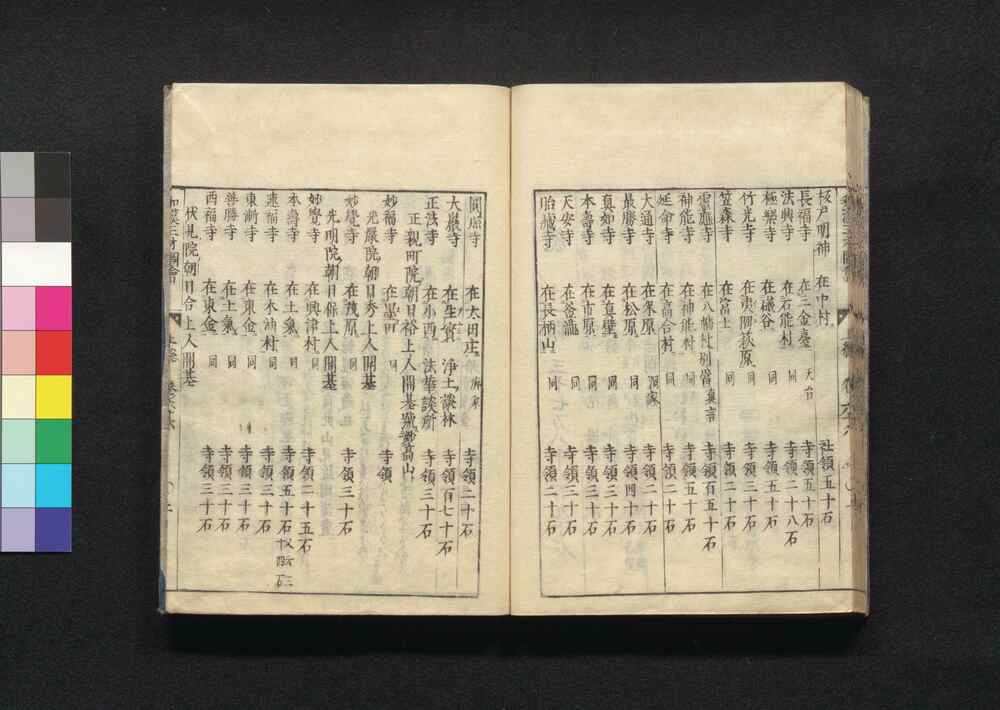 坂戸明神 在中村 社領五十石
長福寺 在三金臺 天台 寺領五十石
法興寺 在石能村 同 寺領二十八石
極樂寺 在礒谷 同 寺領五十石
竹光寺 在荻原 同 寺領三十石
笠森寺 在富士 同 寺領二十石
靈應寺 在八幡村別當 真言 寺領百五十石
神能寺 在神能村 同 寺領五十石
延命寺 在髙合村 同 寺領二十石
大通寺 在朱原 済家 寺領二十石
最勝寺 在松原 同 寺領四十石
真如寺 在真壁 同 寺領三十石
本壽寺 在市原 同 寺領三十石
天安寺 在釜瀧 同 寺領三十石
胎蔵寺 在長柄山 同 寺領二十石
圓應寺 在太田庄 済家 寺領二十石
大巖寺 在生實 浄土談林 寺領百七十石
正法寺 在小西 法華談所 寺領三十石
正親町院朝日裕上人開基號妙髙山
妙福寺 在墨田 同 寺領
光嚴院朝日秀上人開基
妙覺寺 在茂原 同 寺領三十石
光明院朝日保上人開基
妙覺寺 在興津村 同 寺領二十五石
本壽寺 在土氣 同 寺領五十石
連福寺 在木浦村 同 寺領三十石
東漸寺 在東金 同 寺領三十石
善勝寺 在土氣 同 寺領三十石
西福寺 在東金 同 寺領三十石
伏見院朝日合上人開基
和漢三才圖會 上総